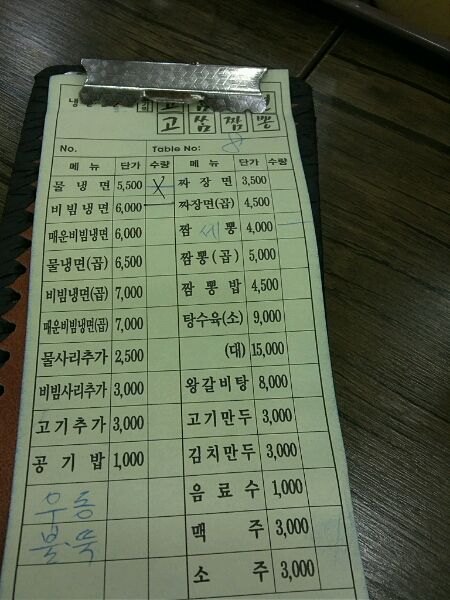 고 쌈 짬 뽕
No. Table No: 8
메 뉴 단가 수량 메 뉴 단가 수량
물 냉 면 5,500 X 짜 장 면 3,500
비 빔 냉 면 6,000 짜장면(곱) 4,500
매운비빔냉면 6,000 짬 뽕 4,000
물냉면(곱) 6,500 짬 뽕(곱) 5,000
비빔냉면(곱) 7,000 짬 뽕 밥 4,500
매운비빔냉면(곱) 7,000 탕수육(소) 9,000
물사리추가 2,500 (대) 15,000
비빔사리추가 3,000 왕갈비탕 8,000
고 기 추 가 3,000 고기만두 3,000
공 기 밥 1,000 김치만두 3,000
우동 음 료 수 1,000
맥 주 3,000
소 주 3,000